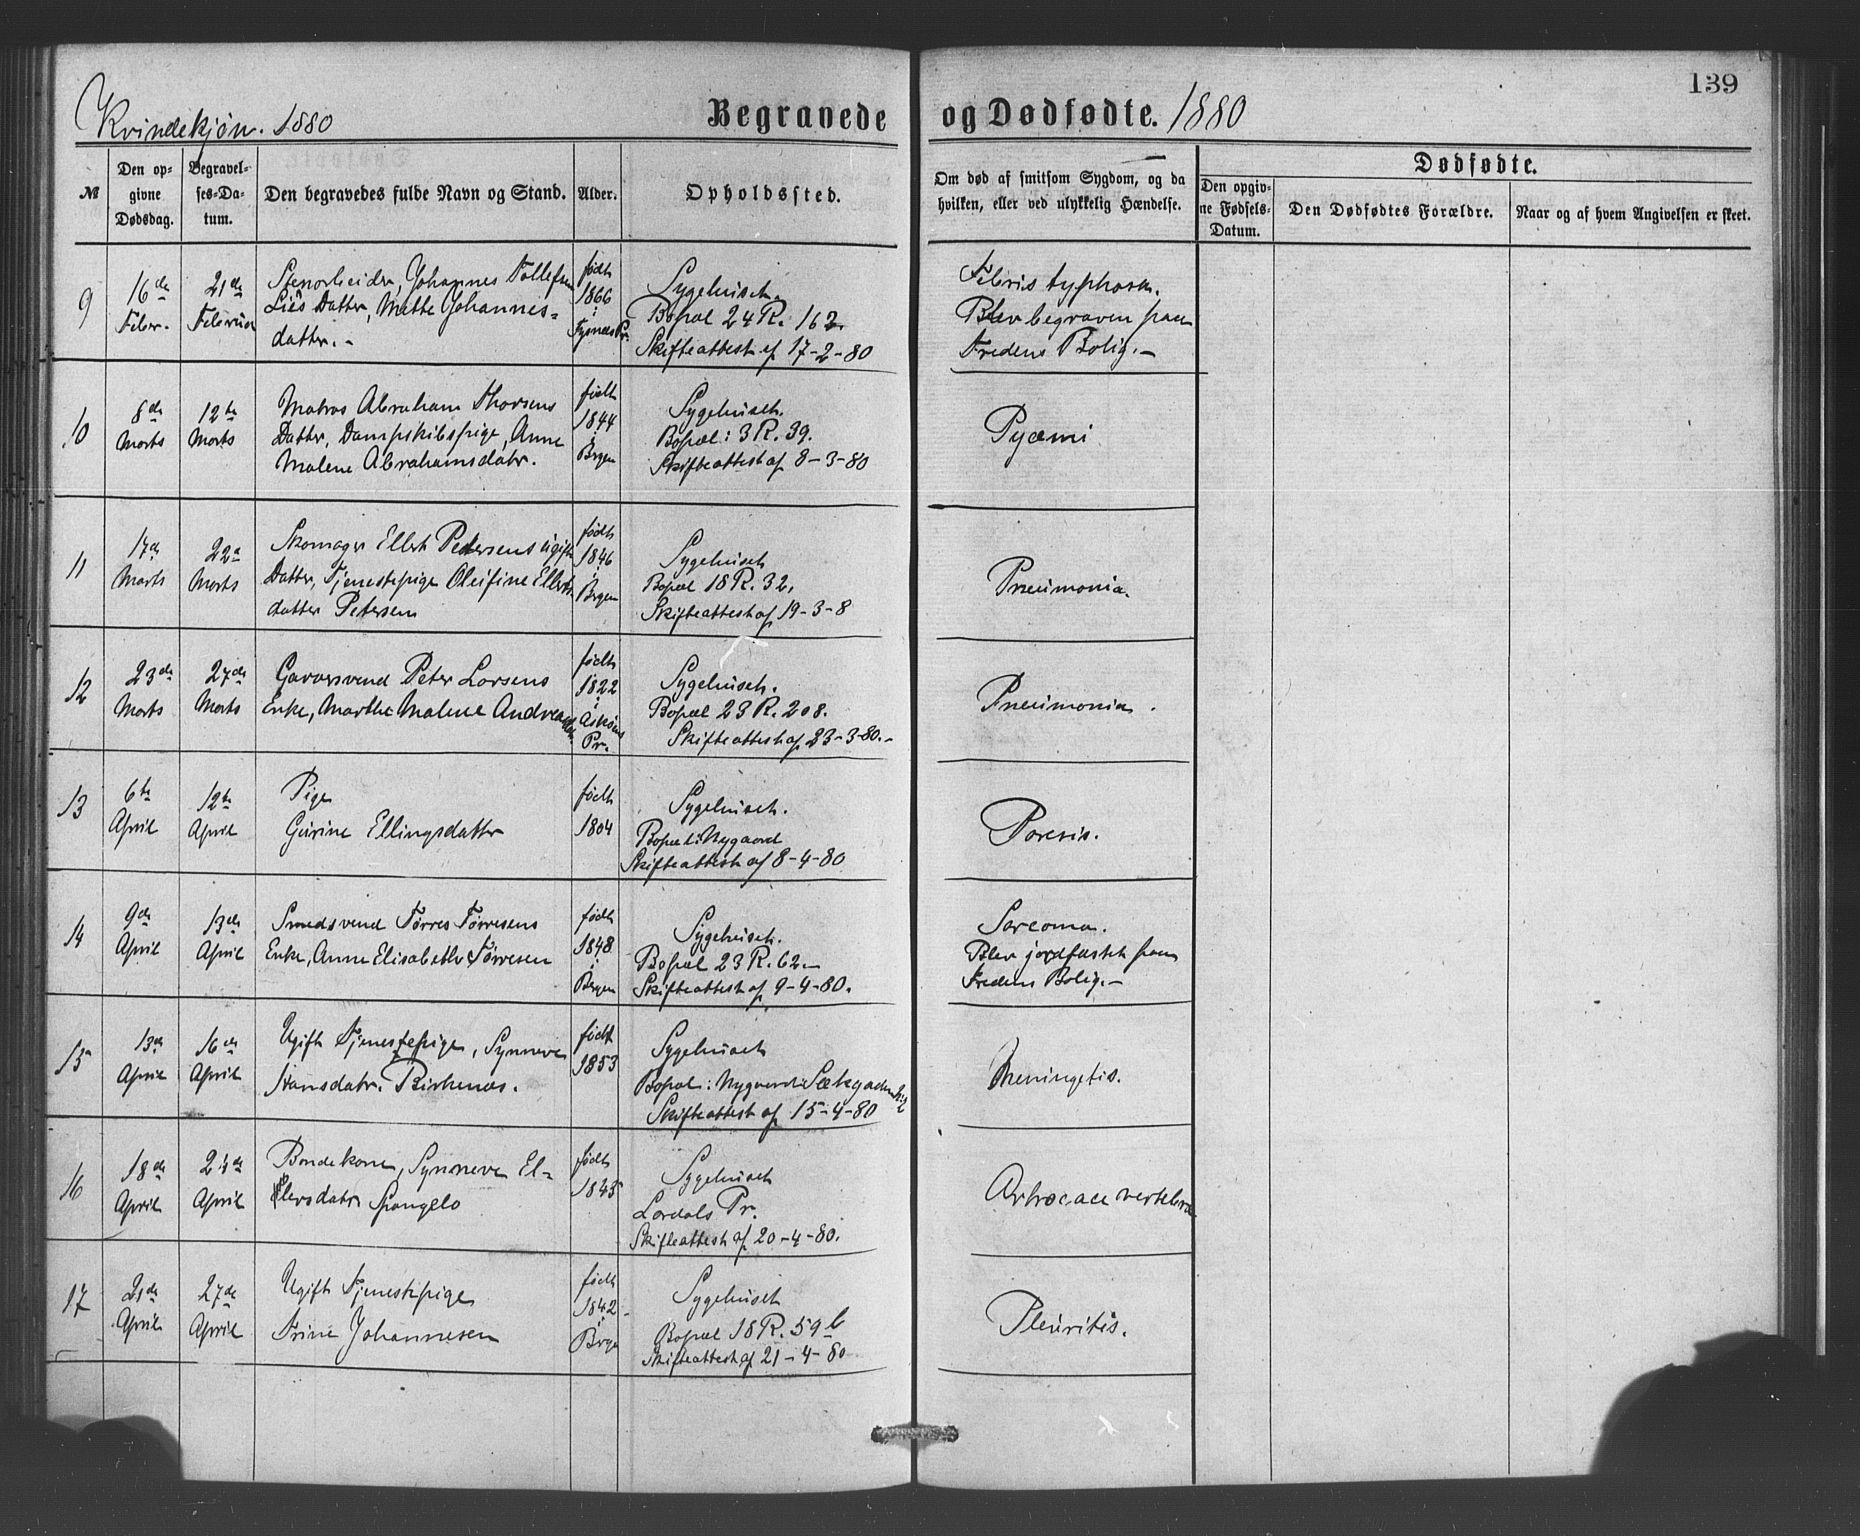 139
Kvindekjøn. 1880
Begravede og Dødfødte. 1880
№
Den op-
givne
Dødsdag.
Begravel-
ses-Da-
tum.
Den begravedes fulde Navn og Stand.
Alder.
Opholdssted.
Om død af smitsom Sygdom, og da
hvilken, eller ved ulykkelig Hændelse.
Dødfødte.
Den opgiv-
ne Fødsels-
Datum.
Den Dødfødtes Forældre.
Naar og af hvem Angivelsen er skeet.
9
16de
Febr.
21de
Februar
Johannes Tollefsen
Liës Datter, Matte Johannes-
datter.-
født
1866
i
Fysnæs Pr.
Sygehuset.
Bopæl 24 R. 162.
Skifteattest af 17-2-80
Febris typhosa.
Blev begraven paa
Fredens Bolig.-
10
8de
Marts
12te
Marts
Matros Abraham Thorsens
Datter, Dampskibspige, Anne
Malene Abrahamsdatr.
født
1844
i
Bergen
Sygehuset.
Bopæl: 3 R. 39.
Skifteattest af 8-3-80
Pyæmi
11
17de
Marts
22de
Marts
Skomager Ellert Petersens ugifte
Datter, Tjenestepige Oleifine Ellerts
datter Petersen
født
1846
i
Bergen
Sygehuset
Bopæl 18 R. 32.
Skifteattest af 19-3-8
Pneumonia.
12
23de
Marts
27de
Marts
Garversvend Peter Larsens
Enke, Marthe Malene Andreasdtr.
født
1822
i
Askøens
Pr.
Sygehuset.
Bopæl 23 R. 208.
Skifteattest af 23-3-80.-
Pneumonia.
13
6te
April
12te
April
Pige
Gurine Ellingsdatter
født
1804
Sygehuset.
Bopæl: Nygaard
Skifteattest af 8-4-80
Paresis.
14
9de
April
13de
April
Smedsvend Tørres Tørresens
Enke, Anne Elisabethe Tørresen
født
1848
i
Bergen
Sygehuset.
Bopæl 23 R. 62.-
Skifteattest af 9-4-80.
Sarcoma.
Blev jordfæstet paa
Fredens Bolig.-
15
13de
April
16de
April
Ugift Tjenestepige, Synneve
Hansdatr. Kirkenæs.
født
1853
Sygehuset
Bopæl: Nygaard
Skifteattest af 15-4-80
Meningetis.
16
18de
April
24de
April
Bondekone, Synneve El-
lersdatr Spangelo
født
1845
Sygehuset
Lærdals Pr.
Skifteattest af 20-4-80.
Artrocace vertebræ
17
21de
April
27de
April
Ugift Tjenestepige
Trine Johannesen
født
1842
i
Berge
Sygehuset
Bopæl 18 R. 59b
Skifteattest af 21-4-80
Pleuritis.